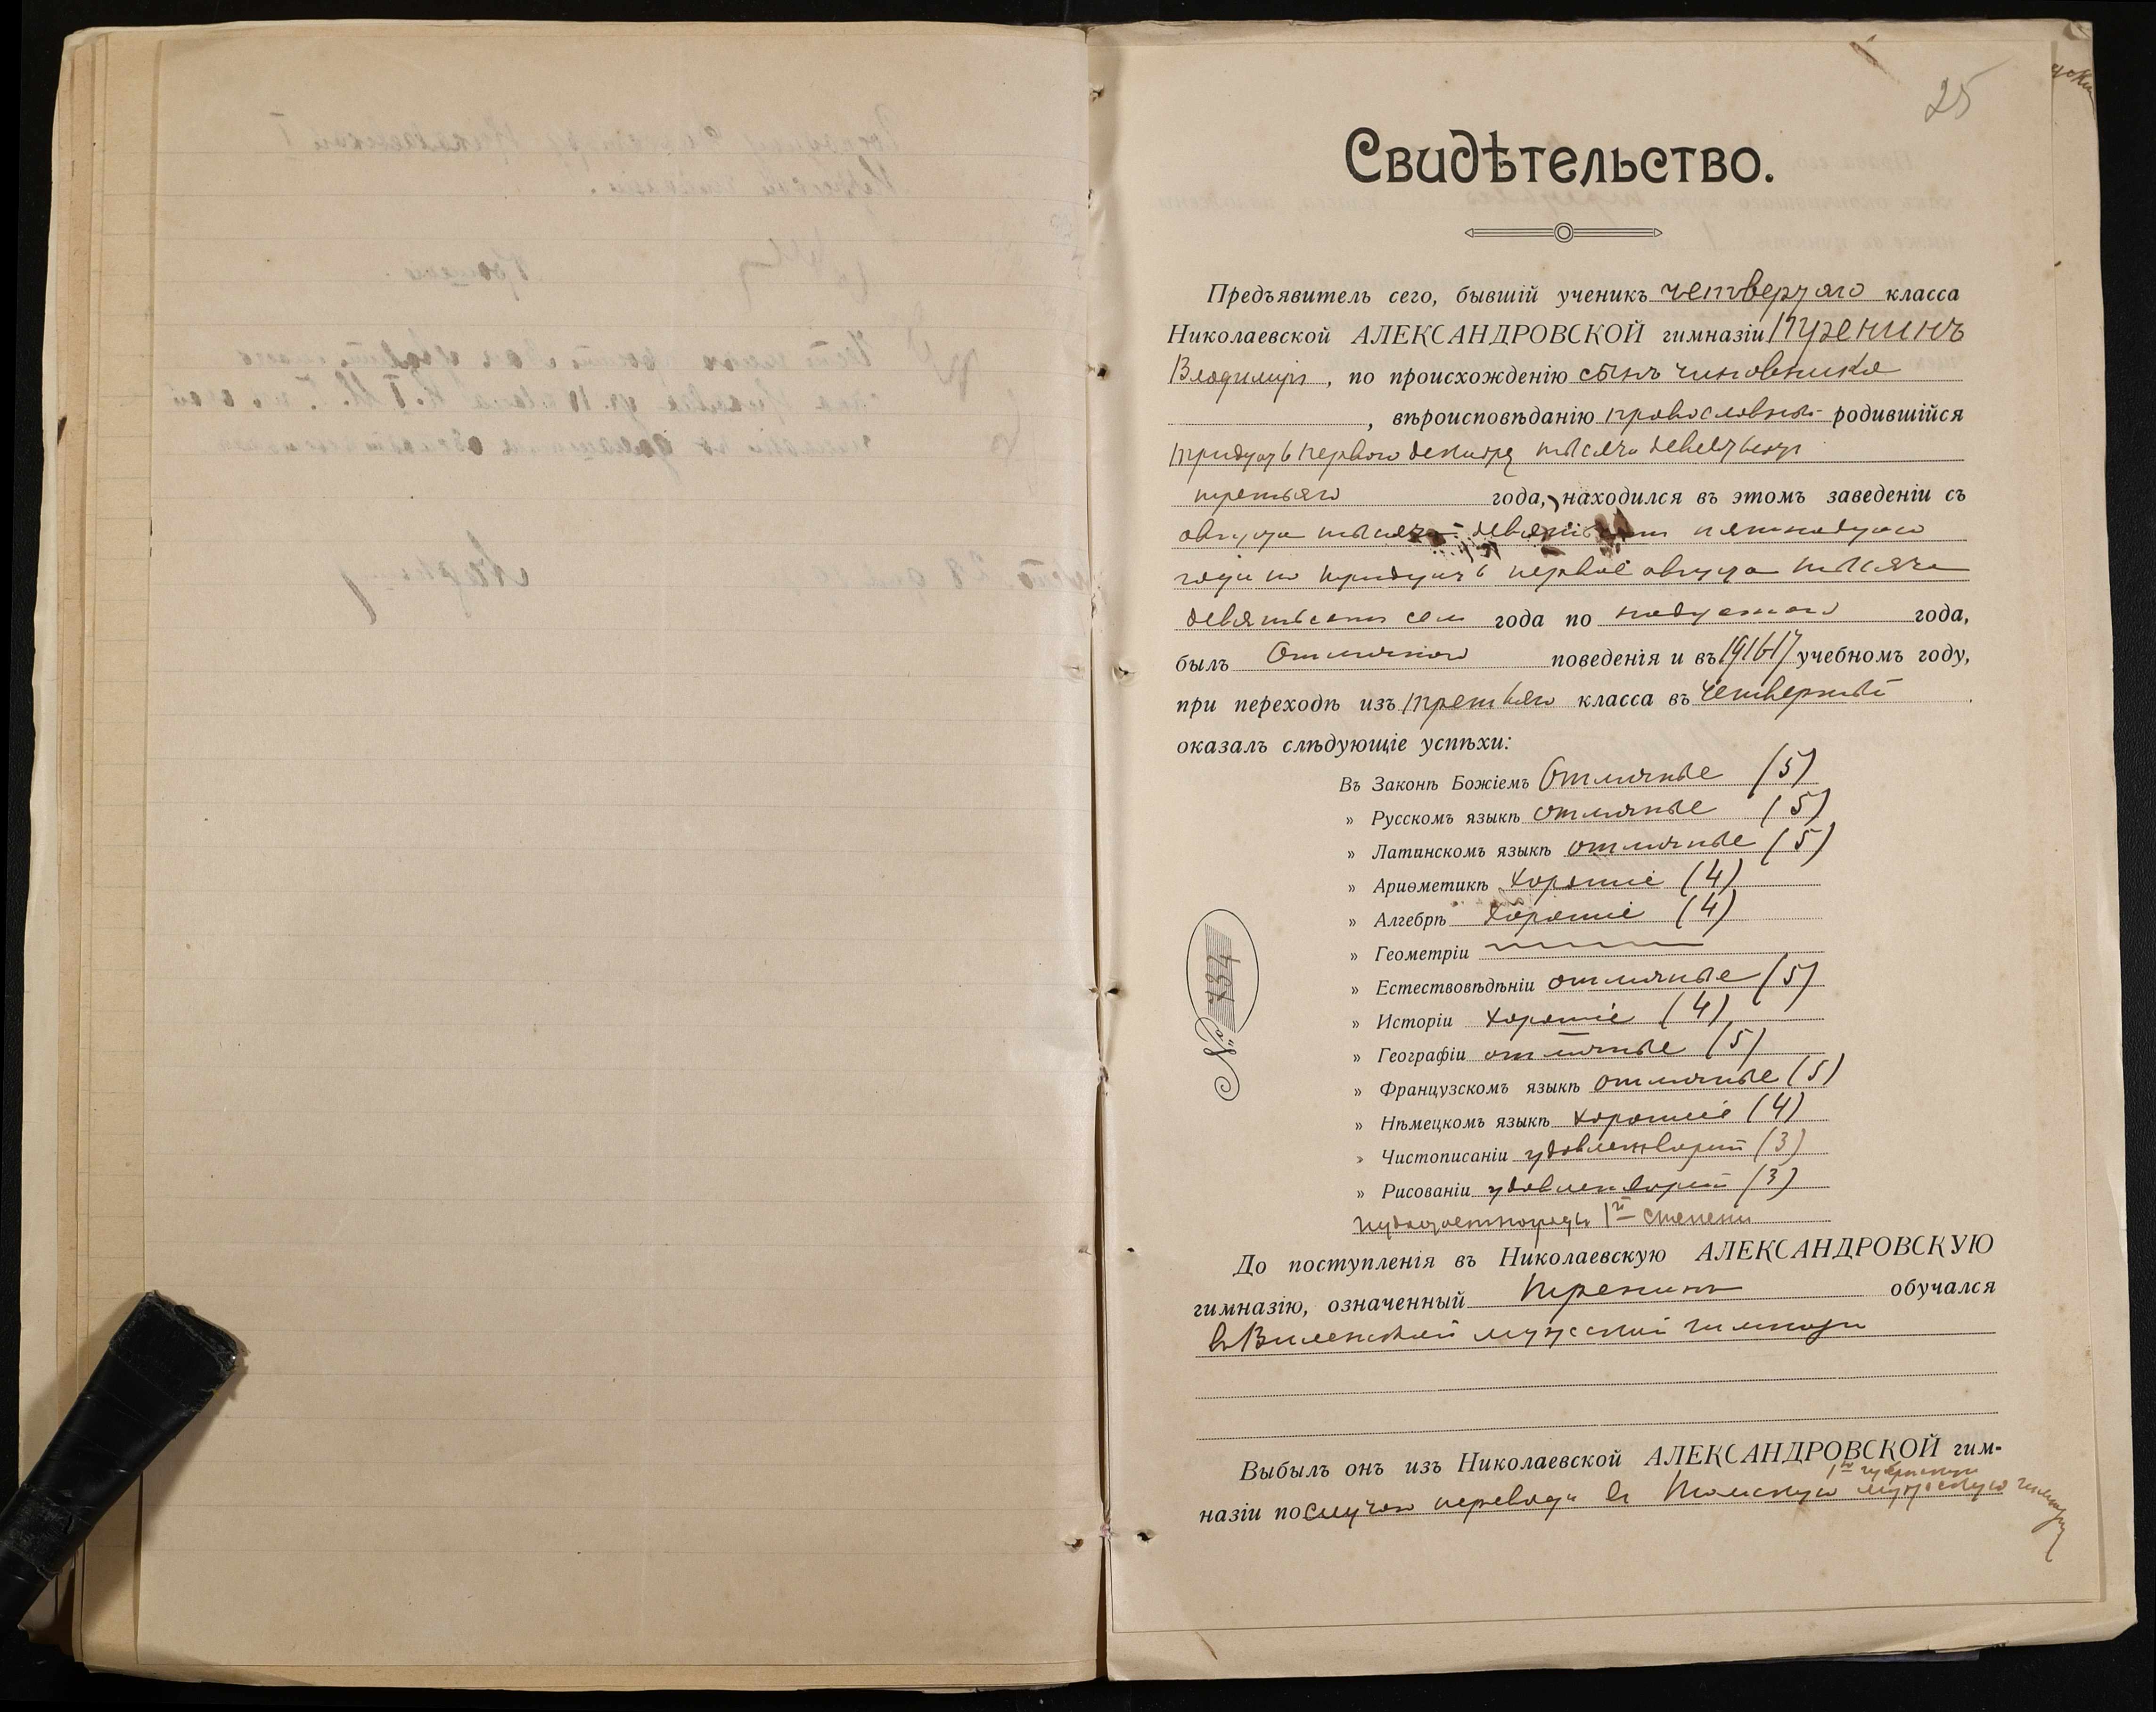 25
Свидѣтельство.
Предъявитель сего, бывшій ученикъ четвертаго класса
Николаевской АЛЕКСАНДРОВСКОЙ гимназіи Пренинъ
Владимiръ, по происхожденію сынъ чиновника
, вѣроисповѣданію православный родившійся
тридцать перваго декабря тысяча девятьсотъ
третьяго года, находился въ этомъ заведеніи съ
августа тысяча девятьсотъ пятнадцатаго
года по тридцать первое августа тысяча
девятьсотъ сем года по надцатаго года,
былъ Отличнаго поведенія и въ 1916/17 учебномъ году,
при переходѣ изъ третьяго класса въ четвертый
оказалъ слѣдующіе успѣхи:
Въ Законѣ Божіемъ Отличные (5)
» Русскомъ языкѣ отличные (5)
» Латинскомъ языкѣ отличные (5)
» Ариѳметикѣ хорошіе (4)
» Алгебрѣ хорошіе (4)
» Геометріи
» Естествовѣдѣніи отличные (5)
» Исторіи хорошіе (4)
» Географіи отличные (5)
» Французскомъ языкѣ отличные (5)
» Нѣмецкомъ языкѣ хорошіе (4)
» Чистописаніи удовлетворит (3)
» Рисованіи удовлетворит (3)
1й степени
№ 734
До поступленія въ Николаевскую АЛЕКСАНДРОВСКУЮ
гимназію, означенный Пренинъ обучался
въ Виленской мужской гимназіи
Выбылъ онъ изъ Николаевской АЛЕКСАНДРОВСКОЙ гим-
1ю губернскую
назіи по случаю перевода въ Томскую мужскую гимназію